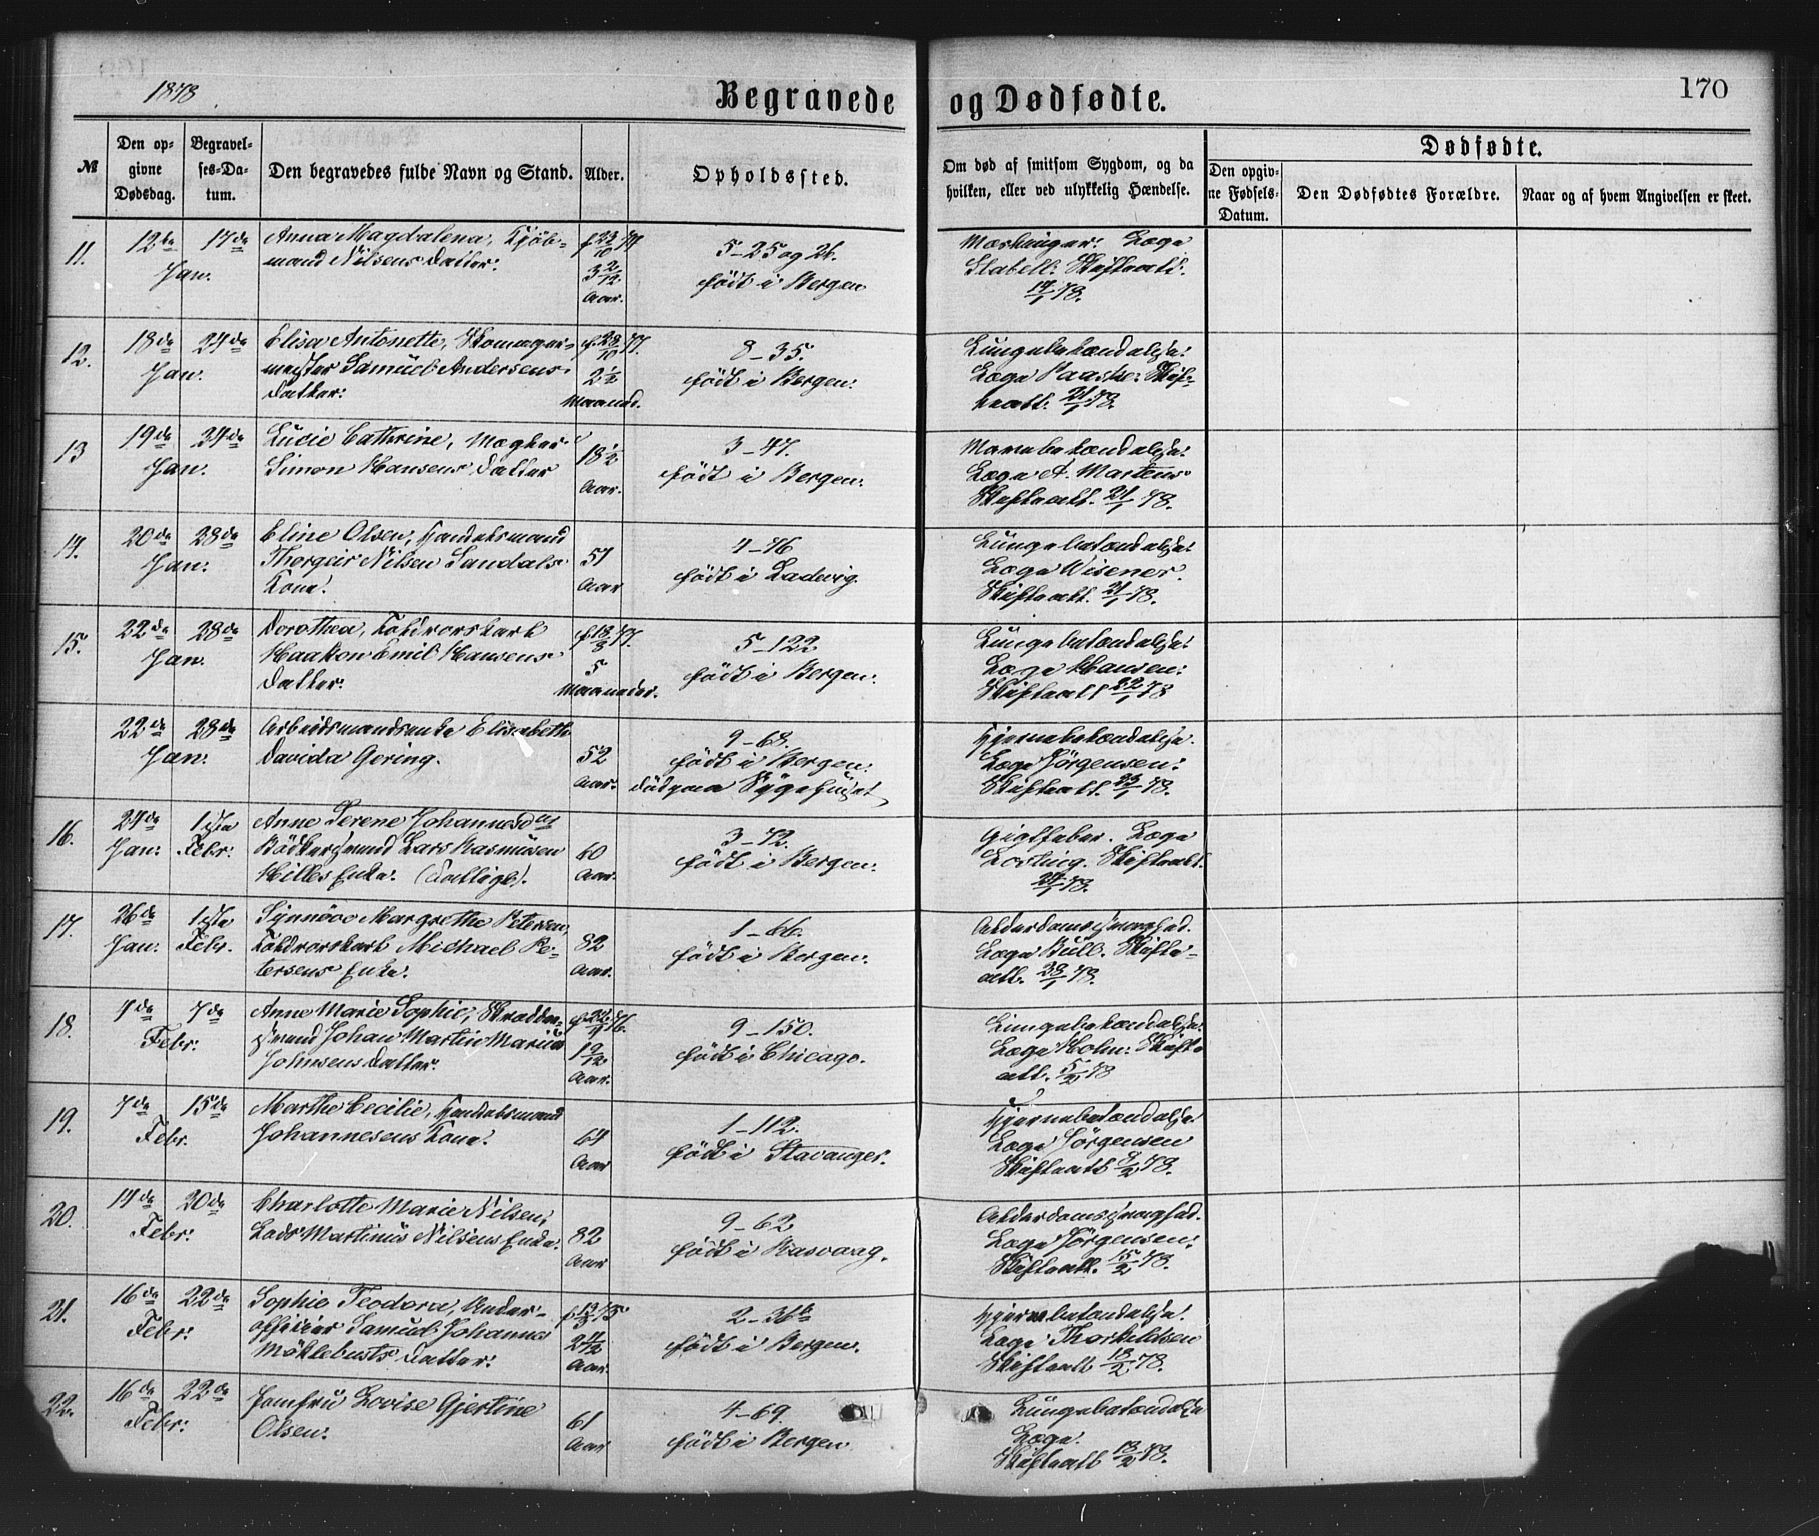 1878
Begravede og Dødfødte.
170
№
Den op-
givne
Dødsdag.
Begravel-
ses-Da-
tum.
Den begravedes fulde Navn og Stand.
Alder.
Opholdssted.
Om død af smitsom Sygdom, og da
hvilken, eller ved ulykkelig Hændelse.
Dødfødte.
Den opgiv-
ne Fødsels-
Datum.
Den Dødfødtes Forældre.
Naar og af hvem Angivelsen er skeet.
11.
12te
Jan.
17de
Anna Magdalena, Kjöb-
mand Nilsens Datter.
f 23/10 74
3 2/12
Aar.
5-25 og 26.
födt i Bergen
Mæslinger. Læge
Stabell. Skifteatt.
17/1 78.
12.
18de
Jan.
24de
Elisa Antonette, Skomager-
mester Samüel Andersens
Datter.
f 28/10 77.
2 1/2
Maaned.
8-35.
födt i Bergen.
Lüngebetændelse.
Læge Paaske. Skif-
teatt. 21/1 78.
13
19de
Jan.
24de
Lücie Cathrine, Mægler
Simon Hansens Datter
18 1/2
Aar.
3-47.
födt i Bergen.
Mavebetændelse.
Læge A. Martens
Skifteatt. 21/1 78.
14.
20de
Jan.
28de
Eline Olsen, Handelsmand
Thorgeir Nilsen Sandals
Kone.
51
Aar
4-46
födt i Ladevig
Lüngebetændelse.
Læge Wisener.
Skifteatt. 21/1 78.
15.
22de
Jan.
28de
Dorothea, Toldrorskarl
Haakon Emil Hansens
Datter.
f 18/8 77.
5
Maaneder.
5-122
födt i Bergen.
Lüngebetændelse.
Læge Hansen.
Skifteatt 22/1 78
22de
Jan.
28de
Arbeidsmandsenke Elisabeth
Davida Gering.
52
Aar.
9-68.
födt i Bergen.
död paa Sygehuset
Hjernebetændelse.
Læge Jörgensen.
Skifteatt. 23/1 78.
16.
24de
Jan.
1ste
Febr.
Anne Serene Johannesdat
Bödkersvend Lars Rasmüsen
Hilles Enke. (Dallige).
60
Aar.
3-72.
födt i Bergen.
Gigtfeber. Læge
Losting. Skifteatt.
24/1 78.
17.
26de
Jan.
1ste
Febr.
Synnöve Margrethe Petersen,
Toldrorskarl Michael Pe-
tersens Enke.
82
Aar.
1-66.
födt i Bergen.
Alderdomssvaghed.
Læge Büll. Skifte-
att. 28/1 78.
18.
4de
Febr.
7de
Anne Marie Sophie, Skrædder-
svend Johan Martin Mariüs
Johnsens Datter.
76.
1 9/12
Aar.
9-150.
födt i Chicago.
Lüngebetændelse.
Læge Holm. Skifte
att. 5/2 78
19.
7de
Febr.
15de
Marthe Cecilie, Handelsmand
Johannesens Kone.
64
Aar
1-112.
födt i Stavanger.
Hjernebetændelse.
Læge Jörgensen
Skifteatt 9/2 78.
20.
14de
Febr.
20de
Charlotte Marie Nilsen,
Lods Martinüs Nilsens Enke.
82
Aar
9-62
födt i Basvaag.
Alderdomssvaghed.
Læge Jörgensen.
Skifteatt. 15/2 78.
21.
16de
Febr.
22de
Sophie Teodora, Under-
officier Samüel Johannes
Möklebusts Datter.
f 13/3 75
2 11/12
Aar.
2-31b
födt i Bergen.
Hjernebetændelse.
Læge Thorkildsen
Skifteatt 18/2 78.
22.
16de
Febr.
22de
Jomfrü Lovise Gjertine
Olsen.
61
Aar
4-69.
födt i Bergen
Lüngebetændelse
Læge.
Skifteatt 18/2 78.